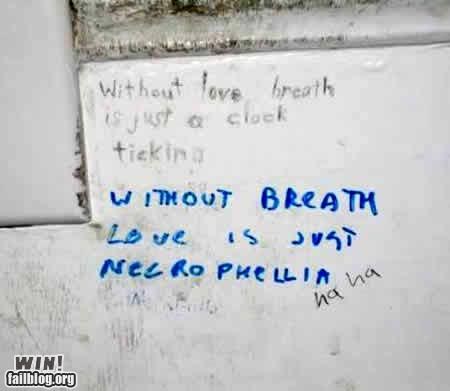 Without love breath
is just a clock
ticking
WITHOUT BREATH
LOVE IS JUST
NECROPHELLIA
ha ha
WIN!
failblog.org